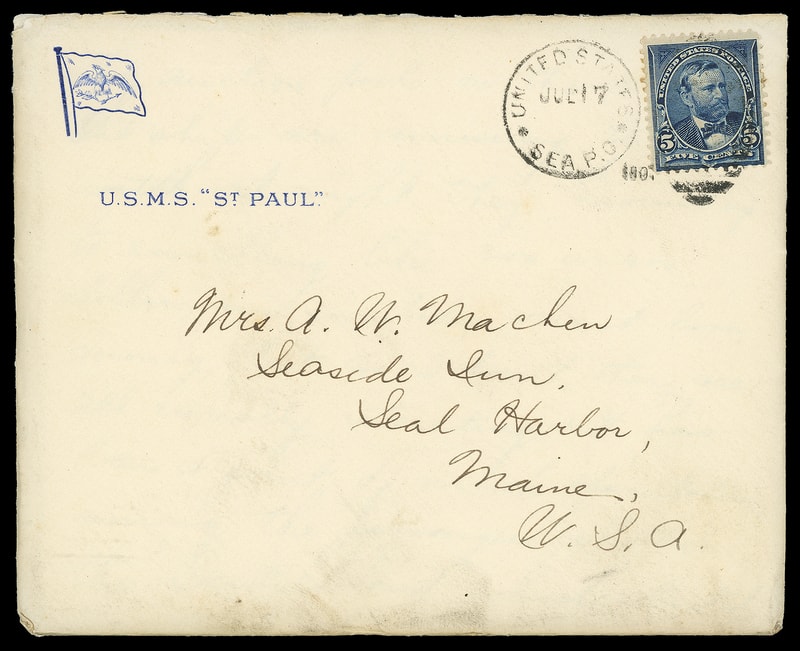 U.S.M.S. "ST PAUL".
UNITED STATES
JUL 17
SEA P.O.
UNITED STATES POSTAGE
5 5
FIVE CENTS
Mrs. A. W. Machen
Seaside Inn,
Seal Harbor,
Maine,
U. S. A.